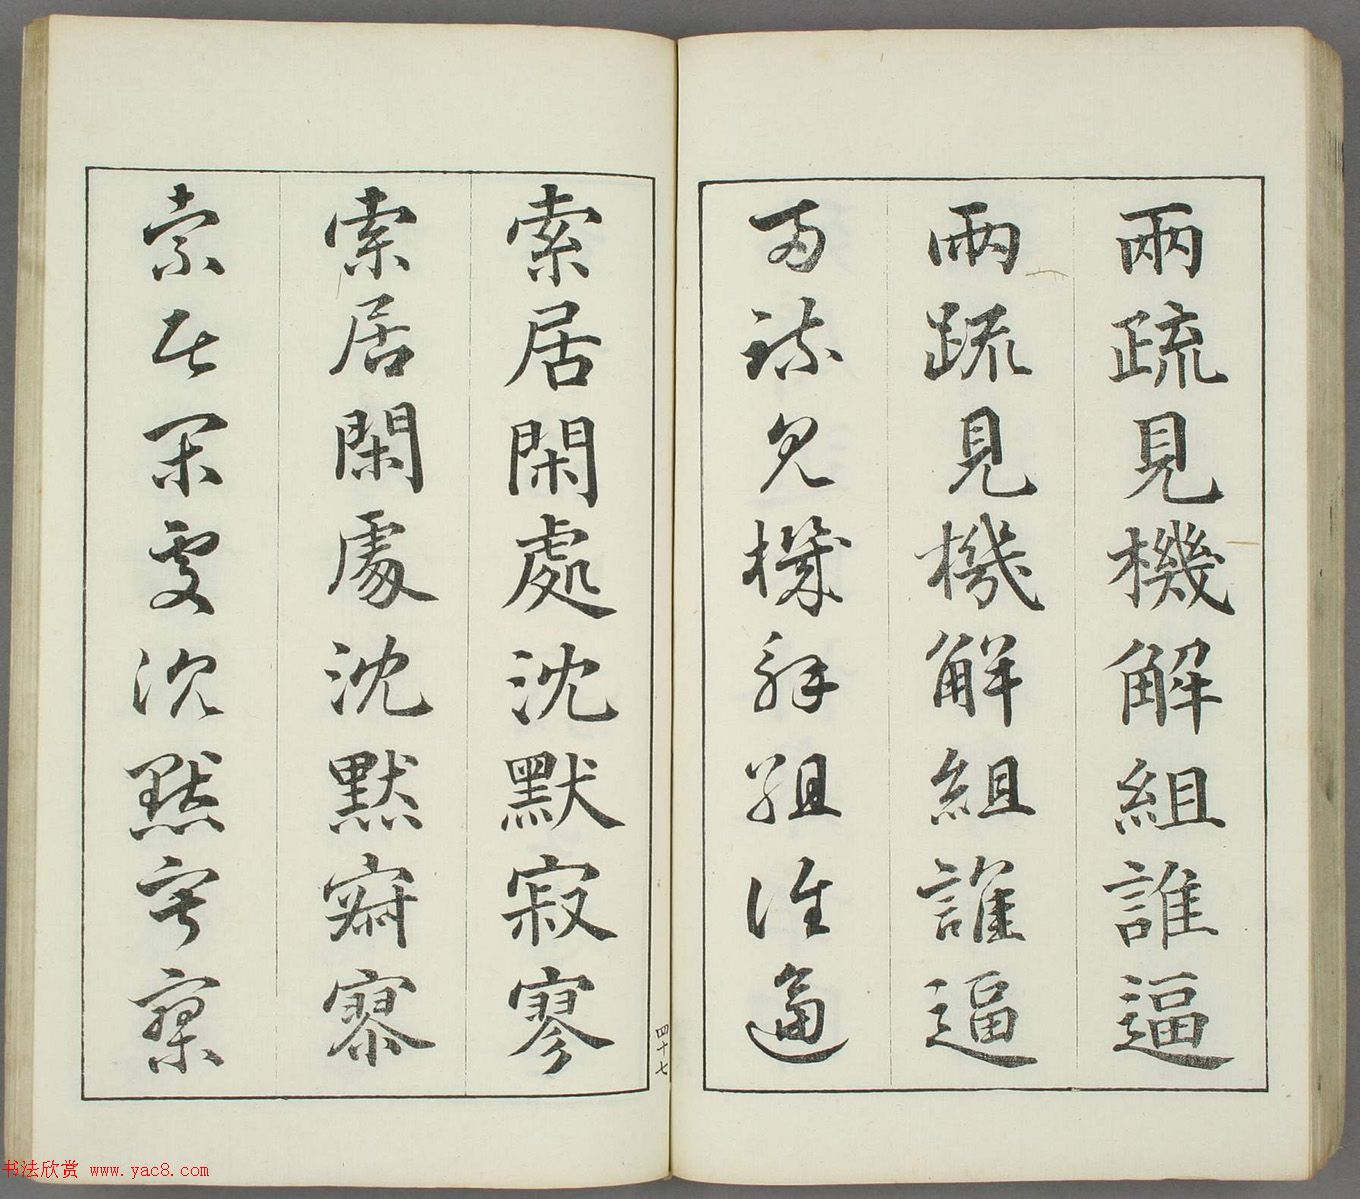 兩疏見機解組誰逼
兩疏見機解組誰逼
兩疏見機解組誰逼
索居閑處沈默寂寥
索居閑處沈默寂寥
索居閑處沈默寂寥
四十七
书法欣赏 www.yac8.com